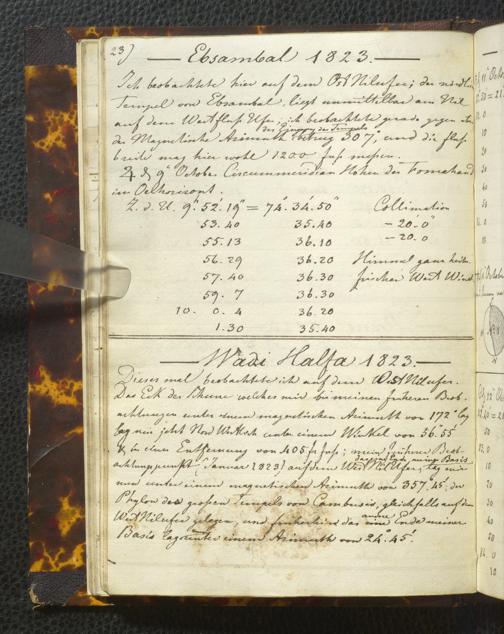 23)
Ebsambal 1823.
Ich beobachtete hier auf dem Ost Nilufer; der nördliche
Tempel von Ebsambal, liegt unmittelbar am Nil
auf dem Westfluss Ufer, ich beobachtete gerade gegen
der Magnetische Azimuth des Tempels betrug 307°, und die Fluss-
breite mag hier wohl 1200 Fuss messen.
♃ d 9 October Circummeridian Höhen des Fomahand
im Oelhorizont.
Z. d. U. 9. 52. 19" = 74°. 34'. 50" Collimation
53. 40 35. 40 - 20'. 0"
55. 13 36. 10 - 20. 0
56. 29 36. 20 Himmel ganz heiter
57. 40 36. 30 frischer West Wind
59. 7 36. 30
10. 0. 4 36. 20
1. 30 35. 40
Wadi Halfa 1823
Dieses mal beobachtete ich auf dem Ost Nilufer.
Das Eck der welches mir bei meinen früheren Beob-
achtungen unter einem magnetischen Azimuth von 172° lag
lag nun jetzt Nord Westlich unter einem Winkel von 56° 55'
in einer Entfernung von 405 Fuss; mein früherer Beob-
achtungspunkt (Januar 1823) auf dem West Nil Ufer, lag nun
unter einem magnetischen Azimuth von 357° 45', der
Phylon des grossen Tempels von Cambusis, gleichfalls auf dem
West Nilufer gelegen, und das eine Ende meiner
Basis lag unter einem Azimuth von 24°. 45'.